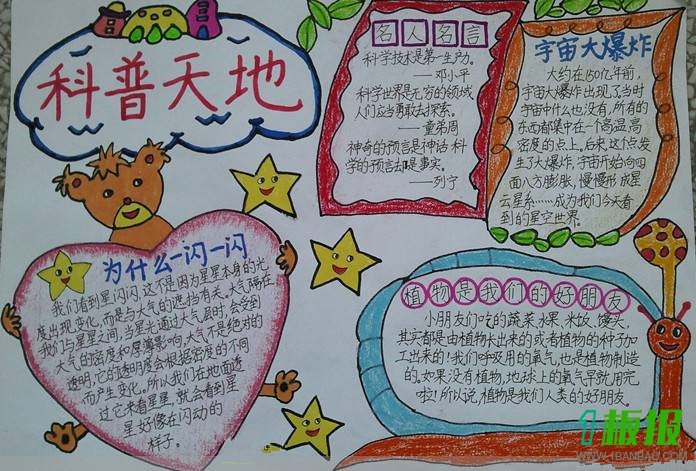 科普天地
名人名言
科学技术是第一生产力。
——邓小平
科学世界是无穷的领域
人们应当勇敢去探索。
——童第周
神奇的预言是神话,科
学的预言却是事实。
——列宁
宇宙大爆炸
大约在150亿年前,
宇宙大爆炸出现了,当时
宇宙中什么也没有,所有的
东西都集中在一个高温,高
密度的点上。后来,这个点发
生了大爆炸,宇宙开始向四
面八方膨胀,慢慢形成星
云星系……成为我们今天看
到的星空世界。
为什么一闪一闪
我们看到星闪闪,这不是因为星星本身的光
度出现变化,而是与大气的遮挡有关。大气隔在
我们与星星之间,当星光通过大气层时,会受到
大气的密度和厚薄影响。大气不是绝对的
透明,它的透明度会根据密度的不同
而产生变化。所以我们在地面透
过它来看星星,就会看到星
星好像在闪动的
样子。
植物是我们的好朋友
小朋友们吃的蔬菜、水果、米饭、馒头,
其实都是由植物长出来的或者植物的种子加
工出来的!我们呼吸用的氧气,也是植物制造
的。如果没有植物,地球上的氧气早就用完
啦!所以说,植物是我们人类的好朋友。
1板报
WWW.1BANBAO.COM